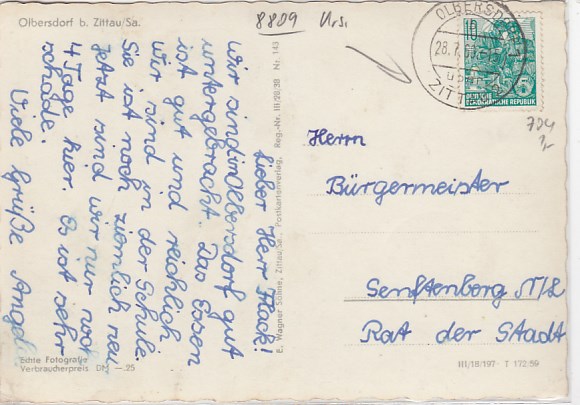 Olbersdorf b. Zittau/Sa.
8809
Lieber Herr Hack!
Wir sind in Olbersdorf gut
untergebracht. Das Essen
ist gut und reichlich
Wir sind in der Schule.
Sie ist noch ziemlich neu
Jetzt sind wir nur noch
4 Tage hier. Es ist sehr
schade.
Viele Grüße Angel
Echte Fotografie
Verbraucherpreis DM —.25
E. Wagner Söhne, Zittau/Sa., Postkartenverlag, Reg.-Nr. III/28/38 Nr. 143
OLBERSDORF
28.7.
ZITTAU
10
5
DEUTSCHE
DEMOKRATISCHE REPUBLIK
704
Herrn
Bürgermeister
Senftenberg N/L
Rat der Stadt
III/18/197 · T 172/59